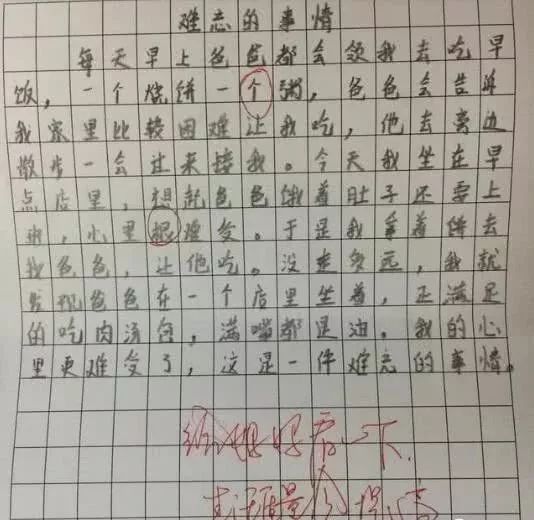 难忘的事情
每天早上爸爸都会领我去吃早
饭，一个烧饼一个粥，爸爸会告诉
我家里比较困难让我吃，他去旁边
散步一会过来接我。今天我坐在早
点店里，想起爸爸饿着肚子还要上
班，心里很难受。于是我拿着饼去
找爸爸，让他吃。没走多远，我就
发现爸爸在一个店里坐着，正满足
的吃肉汤包，满嘴都是油。我的心
里更难受了，这是一件难忘的事情。
给妈妈看一下.